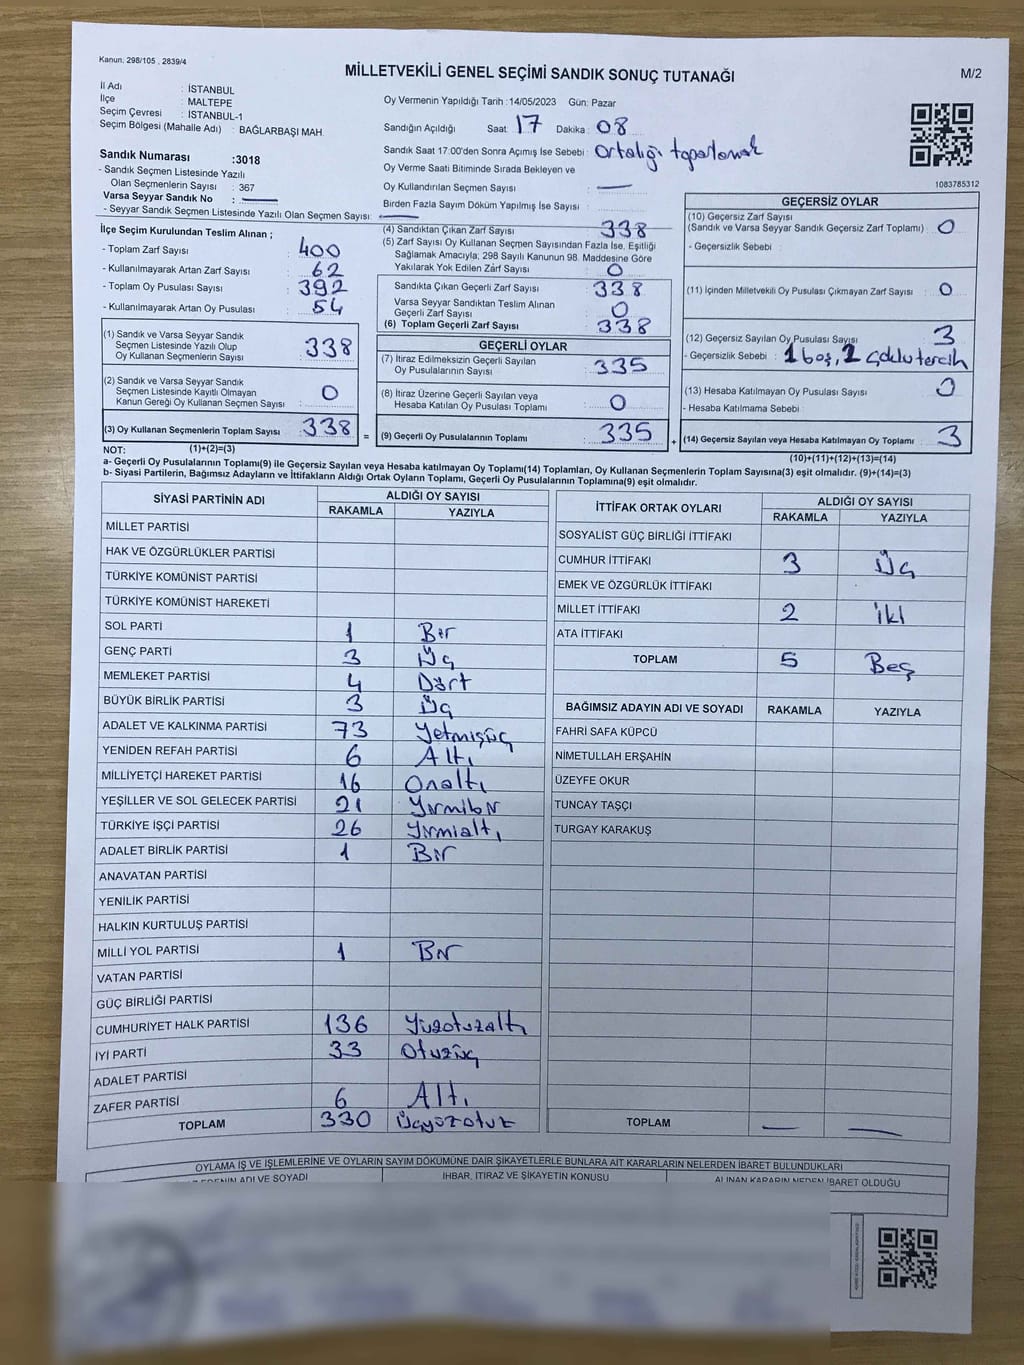 Kanun, 298/105 , 2839/4
MİLLETVEKİLİ GENEL SEÇİMİ SANDIK SONUÇ TUTANAĞI
M/2
İl Adı : İSTANBUL
İlçe : MALTEPE
Seçim Çevresi : İSTANBUL-1
Seçim Bölgesi (Mahalle Adı) : BAĞLARBAŞI MAH.
Oy Vermenin Yapıldığı Tarih :14/05/2023 Gün: Pazar
Sandığın Açıldığı Saat: 17 Dakika: 08
Sandık Saat 17:00'den Sonra Açımış İse Sebebi: Ortalığı toparlamak
Oy Verme Saati Bitiminde Sırada Bekleyen ve
Oy Kullandırılan Seçmen Sayısı : —
Birden Fazla Sayım Döküm Yapılmış İse Sayısı :
Sandık Numarası :3018
- Sandık Seçmen Listesinde Yazılı
Olan Seçmenlerin Sayısı : 367
Varsa Seyyar Sandık No : —
- Seyyar Sandık Seçmen Listesinde Yazılı Olan Seçmen Sayısı: —
1083785312
İlçe Seçim Kurulundan Teslim Alınan ;
- Toplam Zarf Sayısı : 400
- Kullanılmayarak Artan Zarf Sayısı : 62
- Toplam Oy Pusulası Sayısı : 392
- Kullanılmayarak Artan Oy Pusulası : 54
(1) Sandık ve Varsa Seyyar Sandık
Seçmen Listesinde Yazılı Olup
Oy Kullanan Seçmenlerin Sayısı : 338
(2) Sandık ve Varsa Seyyar Sandık
Seçmen Listesinde Kayıtlı Olmayan
Kanun Gereği Oy Kullanan Seçmen Sayısı : 0
(3) Oy Kullanan Seçmenlerin Toplam Sayısı : 338
(1)+(2)=(3)
(4) Sandıktan Çıkan Zarf Sayısı : 338
(5) Zarf Sayısı Oy Kullanan Seçmen Sayısından Fazla İse, Eşitliği
Sağlamak Amacıyla; 298 Sayılı Kanunun 98. Maddesine Göre
Yakılarak Yok Edilen Zarf Sayısı : 0
Sandıkta Çıkan Geçerli Zarf Sayısı : 338
Varsa Seyyar Sandıktan Teslim Alınan
Geçerli Zarf Sayısı : 0
(6) Toplam Geçerli Zarf Sayısı : 338
GEÇERLİ OYLAR
(7) İtiraz Edilmeksizin Geçerli Sayılan
Oy Pusulalarının Sayısı : 335
(8) İtiraz Üzerine Geçerli Sayılan veya
Hesaba Katılan Oy Pusulası Toplamı : 0
= (9) Geçerli Oy Pusulalarının Toplamı : 335
GEÇERSİZ OYLAR
(10) Geçersiz Zarf Sayısı
(Sandık ve Varsa Seyyar Sandık Geçersiz Zarf Toplamı) : 0
- Geçersizlik Sebebi :
(11) İçinden Milletvekili Oy Pusulası Çıkmayan Zarf Sayısı : 0
(12) Geçersiz Sayılan Oy Pusulası Sayısı : 3
- Geçersizlik Sebebi : 1 boş, 2 çoklu tercih
(13) Hesaba Katılmayan Oy Pusulası Sayısı : 0
- Hesaba Katılmama Sebebi :
+ (14) Geçersiz Sayılan veya Hesaba Katılmayan Oy Toplamı : 3
(10)+(11)+(12)+(13)=(14)
NOT:
a- Geçerli Oy Pusulalarının Toplamı(9) ile Geçersiz Sayılan veya Hesaba katılmayan Oy Toplamı(14) Toplamları, Oy Kullanan Seçmenlerin Toplam Sayısına(3) eşit olmalıdır. (9)+(14)=(3)
b- Siyasi Partilerin, Bağımsız Adayların ve İttifakların Aldığı Ortak Oyların Toplamı, Geçerli Oy Pusulalarının Toplamına(9) eşit olmalıdır.
SİYASİ PARTİNİN ADI ALDIĞI OY SAYISI
RAKAMLA YAZIYLA
MİLLET PARTİSİ
HAK VE ÖZGÜRLÜKLER PARTİSİ
TÜRKİYE KOMÜNİST PARTİSİ
TÜRKİYE KOMÜNİST HAREKETİ
SOL PARTİ 1 Bir
GENÇ PARTİ 3 Üç
MEMLEKET PARTİSİ 4 Dört
BÜYÜK BİRLİK PARTİSİ 3 Üç
ADALET VE KALKINMA PARTİSİ 73 Yetmişüç
YENİDEN REFAH PARTİSİ 6 Altı
MİLLİYETÇİ HAREKET PARTİSİ 16 Onaltı
YEŞİLLER VE SOL GELECEK PARTİSİ 21 Yirmibir
TÜRKİYE İŞÇİ PARTİSİ 26 Yirmialtı
ADALET BİRLİK PARTİSİ 1 Bir
ANAVATAN PARTİSİ
YENİLİK PARTİSİ
HALKIN KURTULUŞ PARTİSİ
MİLLİ YOL PARTİSİ 1 Bir
VATAN PARTİSİ
GÜÇ BİRLİĞİ PARTİSİ
CUMHURİYET HALK PARTİSİ 136 Yüzotuzaltı
İYİ PARTİ 33 Otuzüç
ADALET PARTİSİ
ZAFER PARTİSİ 6 Altı
TOPLAM 330 Üçyüzotuz
İTTİFAK ORTAK OYLARI ALDIĞI OY SAYISI
RAKAMLA YAZIYLA
SOSYALİST GÜÇ BİRLİĞİ İTTİFAKI
CUMHUR İTTİFAKI 3 Üç
EMEK VE ÖZGÜRLÜK İTTİFAKI
MİLLET İTTİFAKI 2 İki
ATA İTTİFAKI
TOPLAM 5 Beş
BAĞIMSIZ ADAYIN ADI VE SOYADI RAKAMLA YAZIYLA
FAHRİ SAFA KÜPCÜ
NİMETULLAH ERŞAHİN
ÜZEYFE OKUR
TUNCAY TAŞÇI
TURGAY KARAKUŞ
TOPLAM — —
OYLAMA İŞ VE İŞLEMLERİNE VE OYLARIN SAYIM DÖKÜMÜNE DAİR ŞİKAYETLERLE BUNLARA AİT KARARLARIN NELERDEN İBARET BULUNDUKLARI
ADI VE SOYADI İHBAR, İTİRAZ VE ŞİKAYETİN KONUSU ALINAN KARARIN NEDEN İBARET OLDUĞU